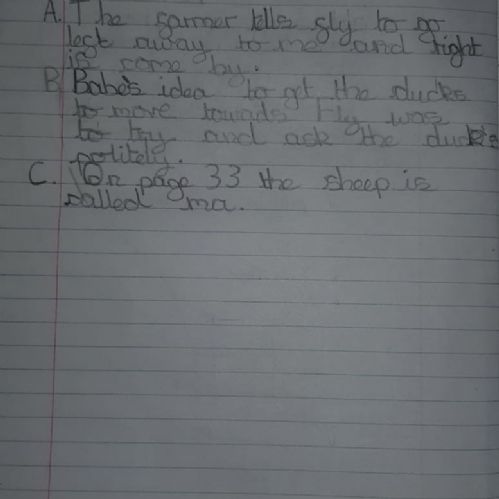 A. The farmer tells fly to go
left away to me and right
is come by.
B. Babe's idea to get the ducks
to move towads Fly was
to try and ask the ducks
politely.
C. On page 33 the sheep is
called ma.